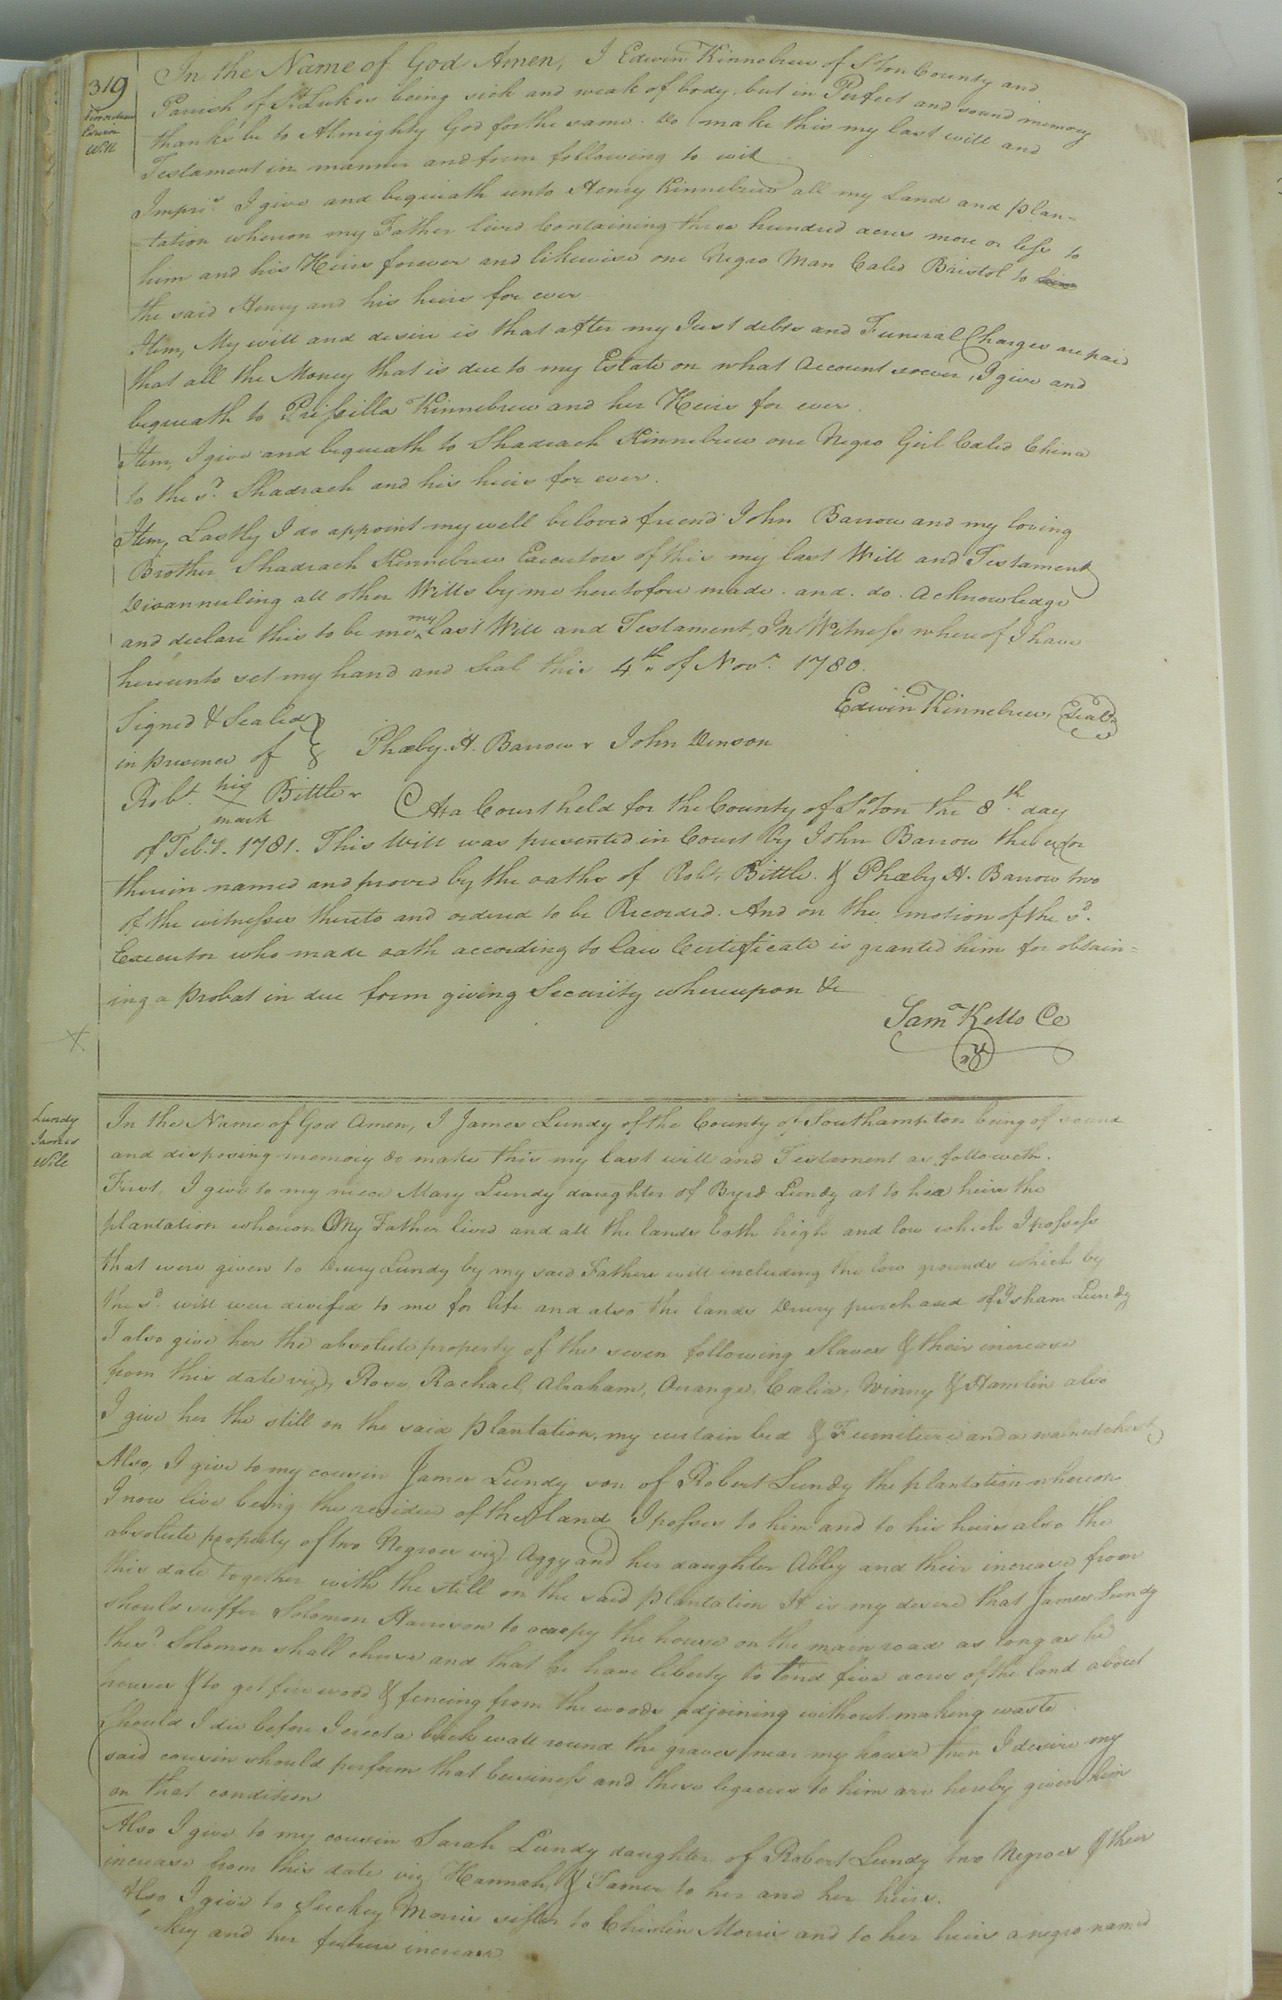 319
Kinnebrew
Edwin
Will
In the Name of God Amen, I Edwin Kinnebrew of S°Ton County and
Parrish of St Lukes being sick and weak of body, but in Perfect and sound memory
thanks be to Almighty God for the same. Do make this my last will and
Testament in manner and form following to wit
Impris I give and bequeath unto Henry Kinnebrew all my Land and plan=
=tation whereon my Father lived Containing three hundred acres more or less to
him and his Heirs forever and likewise one Negro Man Caled Bristol to him
the said Henry and his heirs for ever.
Item, My will and desire is that after my Just debts and Funeral Charges are paid
that all the Money that is due to my Estate on what Account soever, I give and
bequeath to Prissilla Kinnebrew and her Heirs for ever.
Item, I give and bequeath to Shadrach Kinnebrew one Negro Girl Caled China
to the sd. Shadrach and his heirs for ever.
Item, Lastly I do appoint my well beloved friend John Barrow and my loving
Brother Shadrach Kinnebrew Executors of this my last Will and Testament
Disannuling all other Wills by me heretofore made. and. do. acknowledge
and declare this to be me my last Will and Testament, In Witness whereof I have
hereunto set my hand and Seal this 4th of Novr. 1780.
Edwin Kinnebrew, Seal
Signed & Sealed
in presence of Phæby. H. Barrow John Denson
Robt. his Bittle
mark
At a Court held for the County of S°Ton the 8th. day
of Feby. 1781. This Will was presented in Court by John Barrow the exor
therein named and proved by the oaths of Robt. Bittle. & Phæby H. Barrow two
of the witnesses thereto and ordered to be Recorded. And on the motion of the sd.
Executor who made oath according to law Certificate is granted him for obtain=
ing a probat in due form giving Security whereupon &c
Sam Kello Cc
X
Lundy
James
Will
In the Name of God Amen, I James Lundy of the County of Southampton being of sound
and disposing memory do make this my last will and Testament as followeth.
First, I give to my niece Mary Lundy daughter of Byrd Lundy at to her heirs the
plantation whereon My Father lived and all the lands both high and low which I possess
that were given to Drury Lundy by my said Fathers will including the low grounds which by
the sd. will were devised to me for life and also the lands Drury purchased of Isham Lundy
I also give her the absolute property of the seven following Slaves & their increase
from this date viz, Rose, Rachael, Abraham, Orange, Cælia, Winny & Hamlin also
I give her the still on the said plantation, my curtain bed & Furniture and a walnut chest,
Also, I give to my cousin James Lundy son of Robert Lundy the plantation whereon
I now live being the residue of the land I posses to him and to his heirs also the
absolute property of two Negroes viz. Aggy and her daughter Abby and their increase from
this date together with the still on the said plantation It is my desire that James Lundy
should suffer Solomon Harrison to occupy the house on the main road as long as he
the sd. Solomon shall chuse and that he have liberty to tend five acres of the land about
houses & to get fire wood & fencing from the woods adjoining without making waste
Should I die before I erect a brick wall round the graves near my house then I desire my
said cousin should perform that business and these legacies to him are hereby given him
on that condition
Also I give to my cousin Sarah Lundy daughter of Robert Lundy two Negroes & their
increase from this date viz Hannah, & Tamer to her and her heirs.
Also I give to Suckey Morris sister to Chislin Morris and to her heirs a negro named
and her future increase